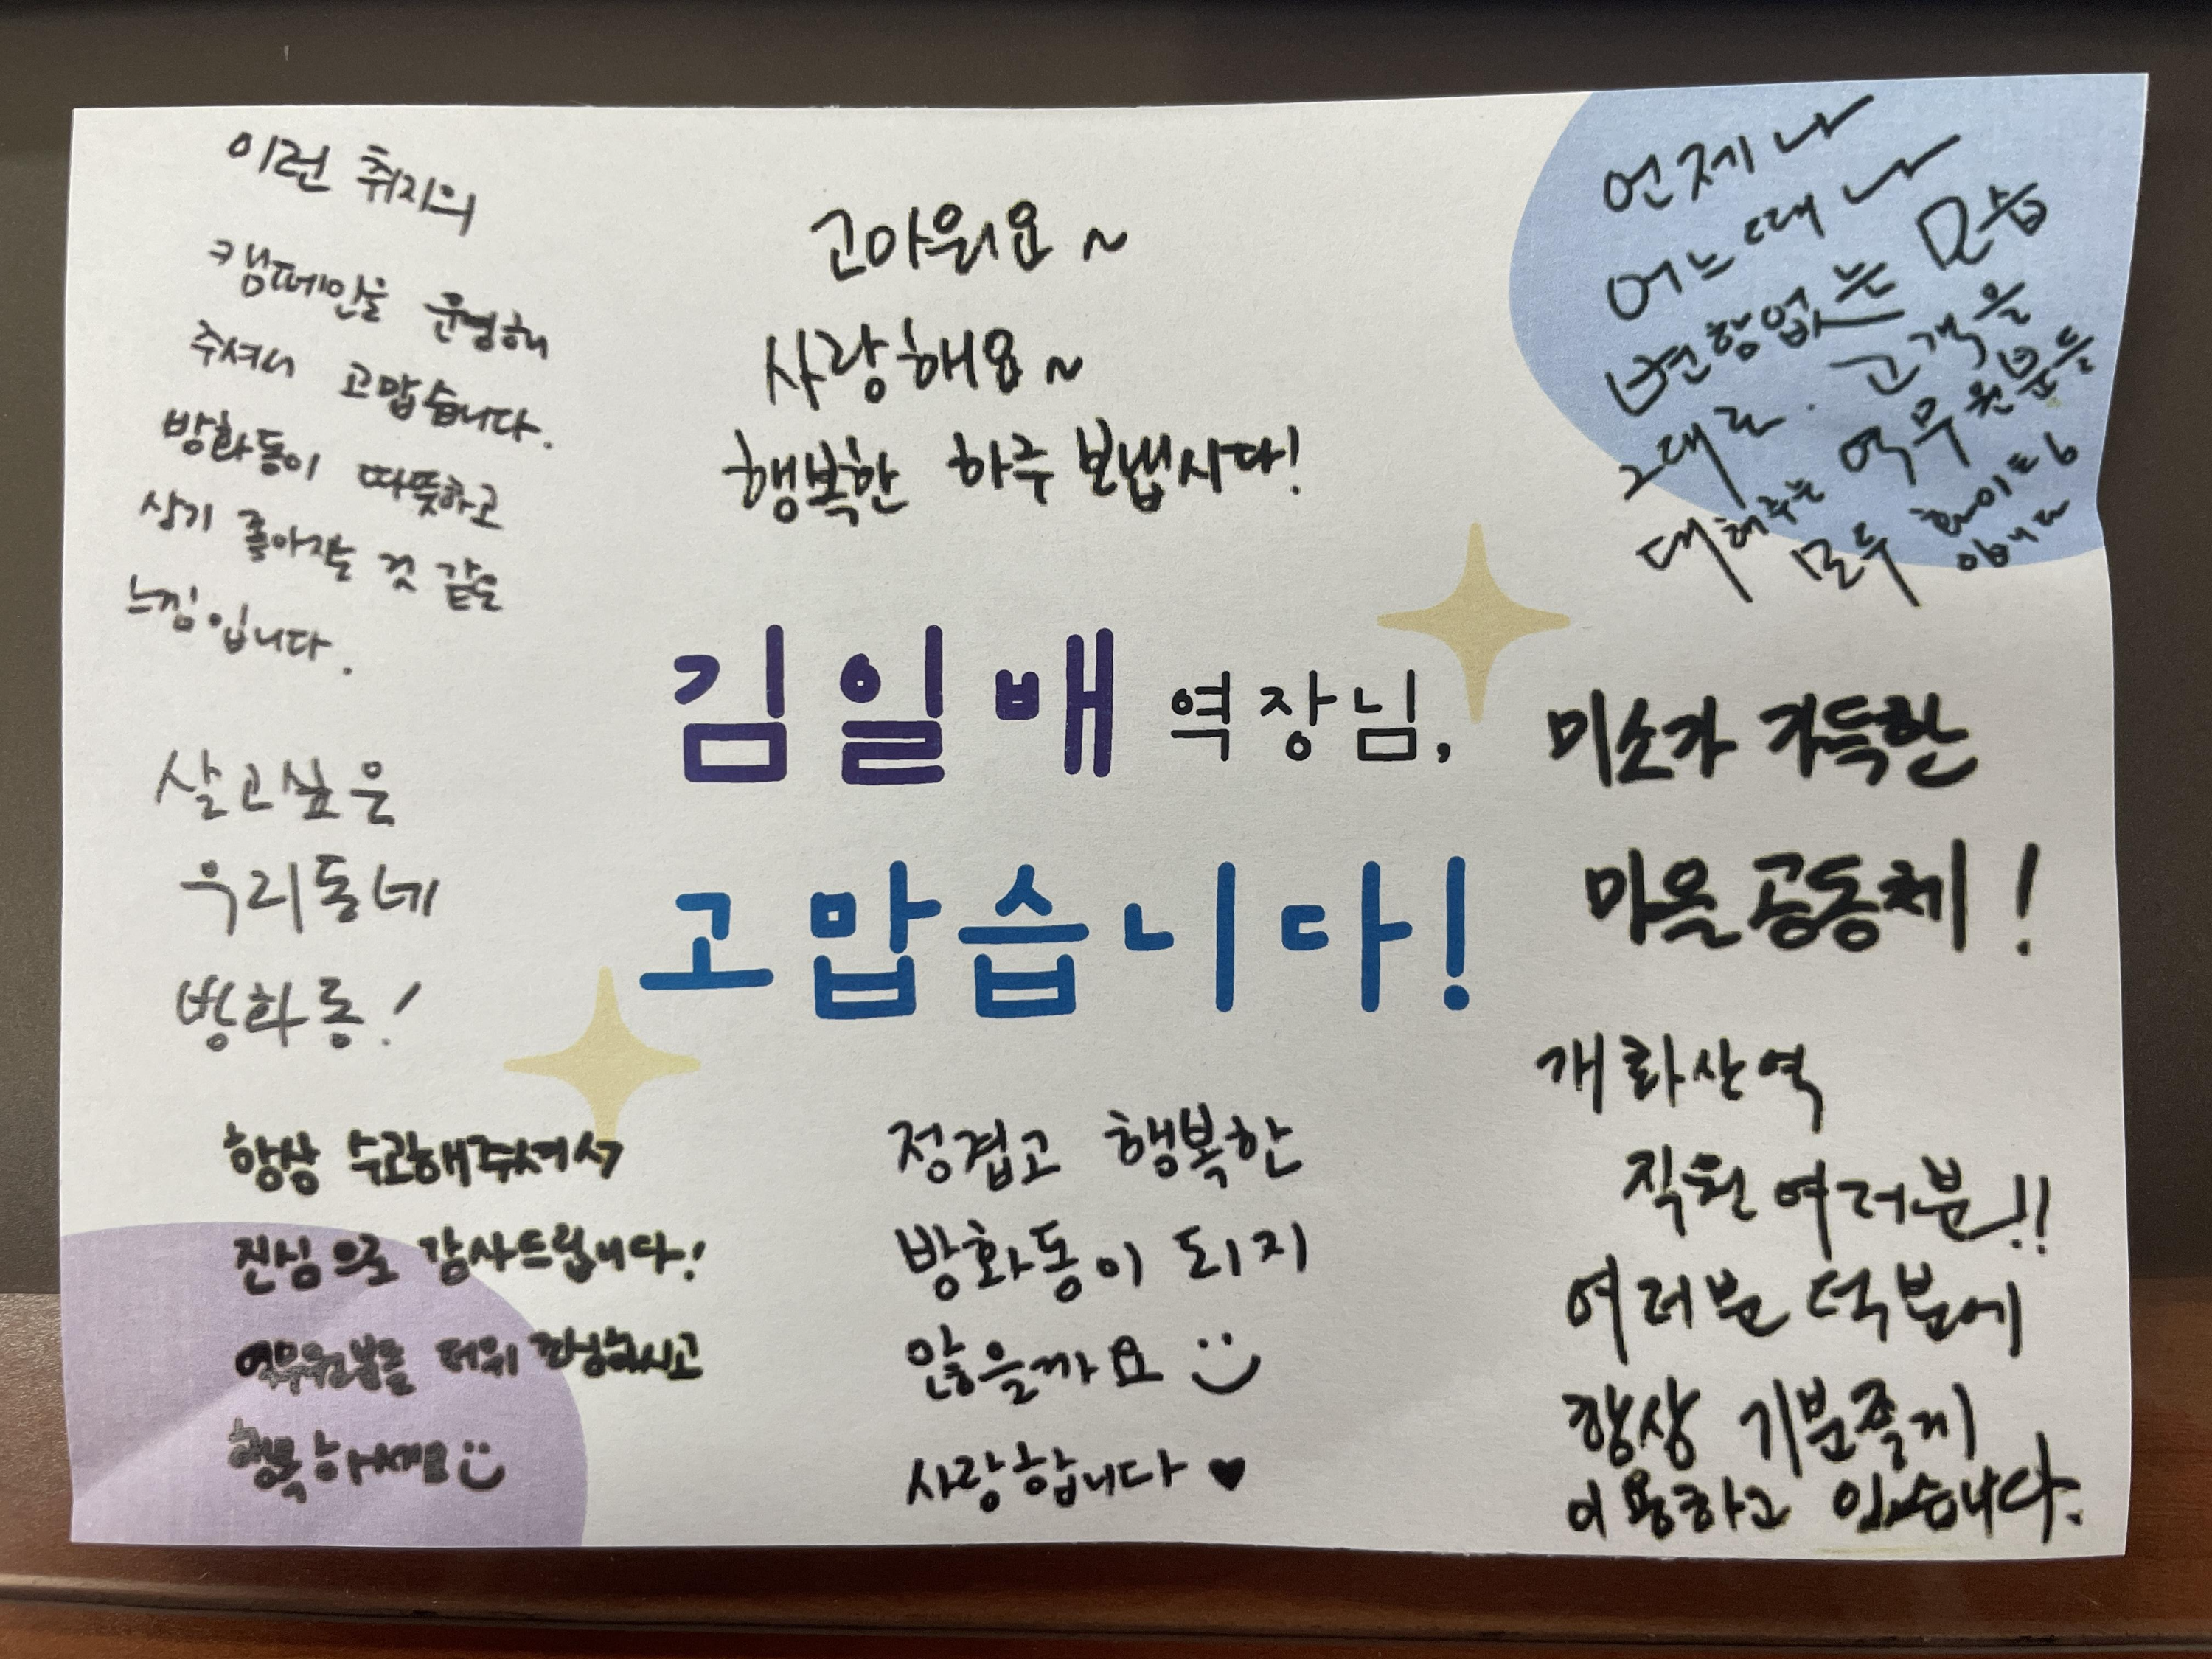 이런 취지의
캠페인을 운영해
주셔서 고맙습니다.
방화동이 따뜻하고
살기 좋아지는 것 같은
느낌입니다.
고마워요~
사랑해요~
행복한 하루 보냅시다!
언제나
어느때나
변함없는 모습
그대로. 고객을
대해주는 역무원분들
모두 화이팅
입니다
김일배 역장님,
고맙습니다!
살고싶은
우리동네
방화동!
미소가 가득한
마을공동체!
항상 수고해주셔서
진심으로 감사드립니다!
역무원분들 더위 조심하시고
행복하세요
정겹고 행복한
방화동이 되지
않을까요
사랑합니다♥
개화산역
직원여러분!!
여러분 덕분에
항상 기분좋게
이용하고 있습니다.